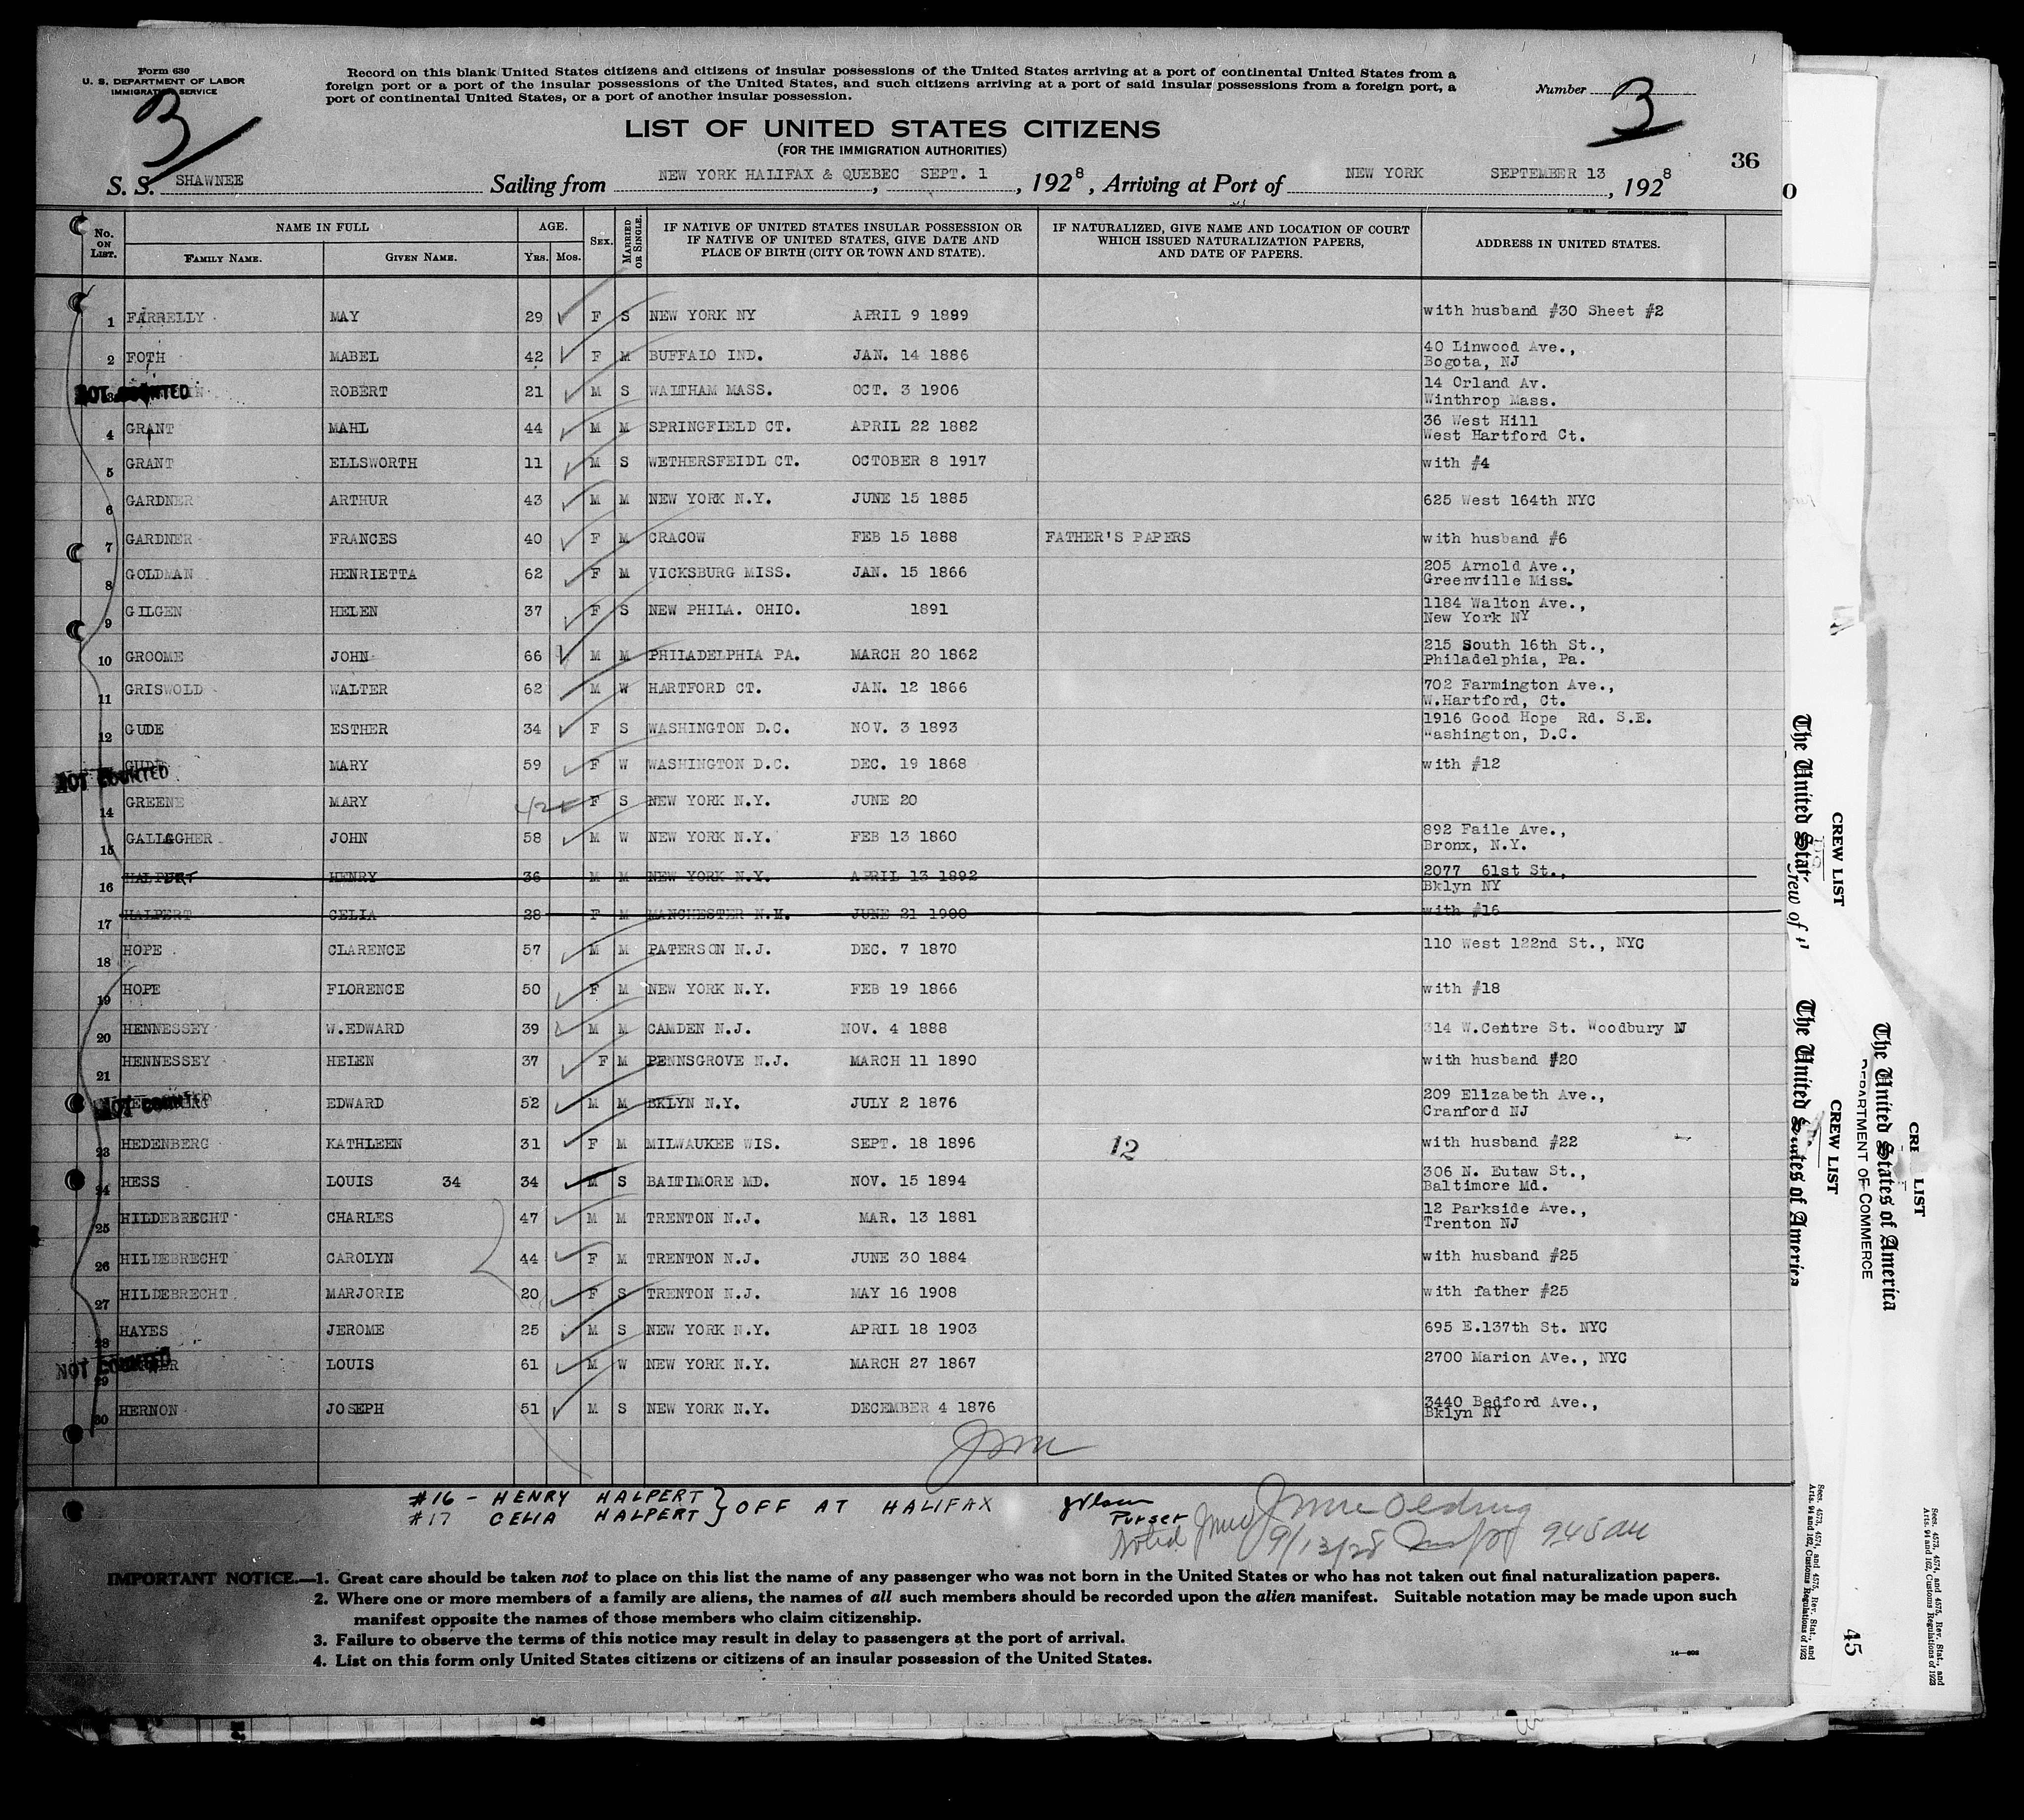 Form 630
U. S. DEPARTMENT OF LABOR
IMMIGRATION SERVICE
3
Record on this blank United States citizens and citizens of insular possessions of the United States arriving at a port of continental United States from a
foreign port or a port of the insular possessions of the United States, and such citizens arriving at a port of said insular possessions from a foreign port, a
port of continental United States, or a port of another insular possession.
Number 3
LIST OF UNITED STATES CITIZENS
(FOR THE IMMIGRATION AUTHORITIES)
36
S. S. SHAWNEE Sailing from NEW YORK HALIFAX & QUEBEC, SEPT. 1, 1928, Arriving at Port of NEW YORK SEPTEMBER 13, 1928
No. ON LIST. NAME IN FULL FAMILY NAME. GIVEN NAME. AGE. YRS. MOS. SEX. MARRIED OR SINGLE. IF NATIVE OF UNITED STATES INSULAR POSSESSION OR IF NATIVE OF UNITED STATES, GIVE DATE AND PLACE OF BIRTH (CITY OR TOWN AND STATE). IF NATURALIZED, GIVE NAME AND LOCATION OF COURT WHICH ISSUED NATURALIZATION PAPERS, AND DATE OF PAPERS. ADDRESS IN UNITED STATES.
1 FARRELLY MAY 29 F S NEW YORK NY APRIL 9 1899 with husband #30 Sheet #2
2 FOTH MABEL 42 F M BUFFALO IND. JAN. 14 1886 40 Linwood Ave., Bogota, NJ
NOT COUNTED 3 ROBERT 21 M S WALTHAM MASS. OCT. 3 1906 14 Orland Av. Winthrop Mass.
4 GRANT MAHL 44 M M SPRINGFIELD CT. APRIL 22 1882 36 West Hill West Hartford Ct.
5 GRANT ELLSWORTH 11 M S WETHERSFEIDL CT. OCTOBER 8 1917 with #4
6 GARDNER ARTHUR 43 M M NEW YORK N.Y. JUNE 15 1885 625 West 164th NYC
7 GARDNER FRANCES 40 F M CRACOW FEB 15 1888 FATHER'S PAPERS with husband #6
8 GOLDMAN HENRIETTA 62 F M VICKSBURG MISS. JAN. 15 1866 205 Arnold Ave., Greenville Miss.
9 GILGEN HELEN 37 F S NEW PHILA. OHIO. 1891 1184 Walton Ave., New York NY
10 GROOME JOHN 66 M M PHILADELPHIA PA. MARCH 20 1862 215 South 16th St., Philadelphia, Pa.
11 GRISWOLD WALTER 62 M W HARTFORD CT. JAN. 12 1866 702 Farmington Ave., W.Hartford, Ct.
12 GUDE ESTHER 34 F S WASHINGTON D.C. NOV. 3 1893 1916 Good Hope Rd. S.E. Washington, D.C.
NOT COUNTED GUDE MARY 59 F W WASHINGTON D.C. DEC. 19 1868 with #12
14 GREENE MARY 42 F S NEW YORK N.Y. JUNE 20
15 GALLAGHER JOHN 58 M W NEW YORK N.Y. FEB 13 1860 892 Faile Ave., Bronx, N.Y.
16 HALPERT HENRY 36 M M NEW YORK N.Y. APRIL 13 1892 2077 61st St., Bklyn NY
17 HALPERT CELIA 28 F M MANCHESTER N.H. JUNE 21 1900 with #16
18 HOPE CLARENCE 57 M M PATERSON N.J. DEC. 7 1870 110 West 122nd St., NYC
19 HOPE FLORENCE 50 F M NEW YORK N.Y. FEB 19 1866 with #18
20 HENNESSEY W.EDWARD 39 M M CAMDEN N.J. NOV. 4 1888 314 W.Centre St. Woodbury NJ
21 HENNESSEY HELEN 37 F M PENNSGROVE N.J. MARCH 11 1890 with husband #20
NOT COUNTED EDWARD 52 M M BKLYN N.Y. JULY 2 1876 209 Elizabeth Ave., Cranford NJ
23 HEDENBERG KATHLEEN 31 F M MILWAUKEE WIS. SEPT. 18 1896 12 with husband #22
24 HESS LOUIS 34 34 M S BALTIMORE MD. NOV. 15 1894 306 N. Eutaw St., Baltimore Md.
25 HILDEBRECHT CHARLES 47 M M TRENTON N.J. MAR. 13 1881 12 Parkside Ave., Trenton NJ
26 HILDEBRECHT CAROLYN 44 F M TRENTON N.J. JUNE 30 1884 with husband #25
27 HILDEBRECHT MARJORIE 20 F S TRENTON N.J. MAY 16 1908 with father #25
28 HAYES JEROME 25 M S NEW YORK N.Y. APRIL 18 1903 695 E.137th St. NYC
NOT COUNTED 29 LOUIS 61 M W NEW YORK N.Y. MARCH 27 1867 2700 Marion Ave., NYC
30 HERNON JOSEPH 51 M S NEW YORK N.Y. DECEMBER 4 1876 3440 Bedford Ave., Bklyn NY
#16 - HENRY HALPERT } OFF AT HALIFAX
#17 CELIA HALPERT
Purser
9/13/28 945 AM
IMPORTANT NOTICE.—1. Great care should be taken not to place on this list the name of any passenger who was not born in the United States or who has not taken out final naturalization papers.
2. Where one or more members of a family are aliens, the names of all such members should be recorded upon the alien manifest. Suitable notation may be made upon such
manifest opposite the names of those members who claim citizenship.
3. Failure to observe the terms of this notice may result in delay to passengers at the port of arrival.
4. List on this form only United States citizens or citizens of an insular possession of the United States.
CREW LIST
The United States of America
CREW LIST
The United States of America
DEPARTMENT OF COMMERCE
LIST
Secs. 4573, 4574, and 4575, Rev. Stat., and
Arts. 94 and 162, Customs Regulations of 1923
45
Secs. 4573, 4574, and 4575, Rev. Stat., and
Arts. 94 and 162, Customs Regulations of 1923